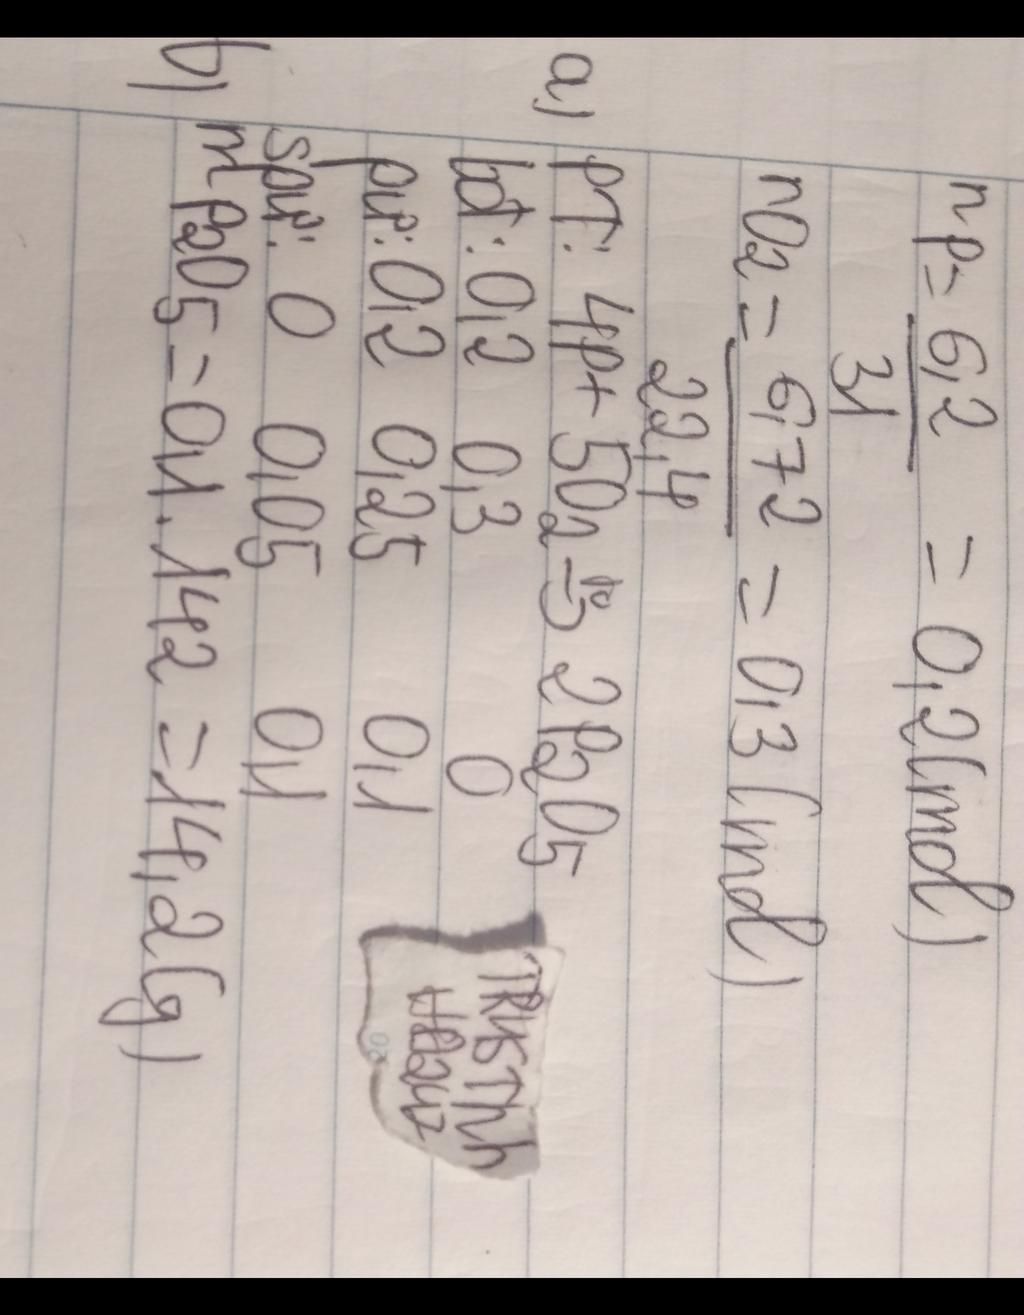 nP = 6,2 / 31 = 0,2 (mol)
nO2 = 6,72 / 22,4 = 0,3 (mol)
a) PT: 4P + 5O2 -t°-> 2P2O5
bđ: 0,2 0,3 0
pư: 0,2 0,25 0,1
spư: 0 0,05 0,1
b) mP2O5 = 0,1.142 = 14,2(g)